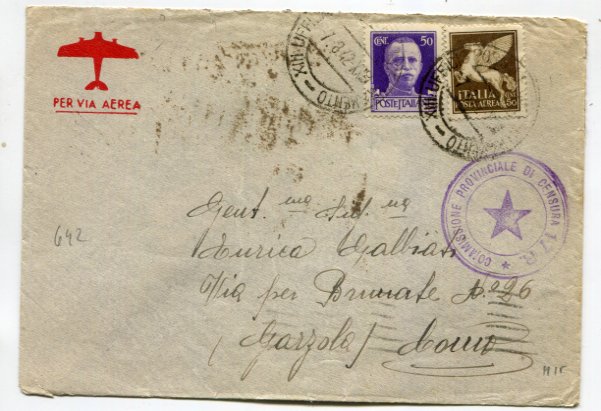 PER VIA AEREA
CENT. 50
POSTE ITALIANE
ITALIA
POSTA AEREA
50
COMMISSIONE PROVINCIALE DI CENSURA
642
Gent.ma Sig.na
Enrica Galbiati
Via per Brunate N. 26
(Garzola) Como